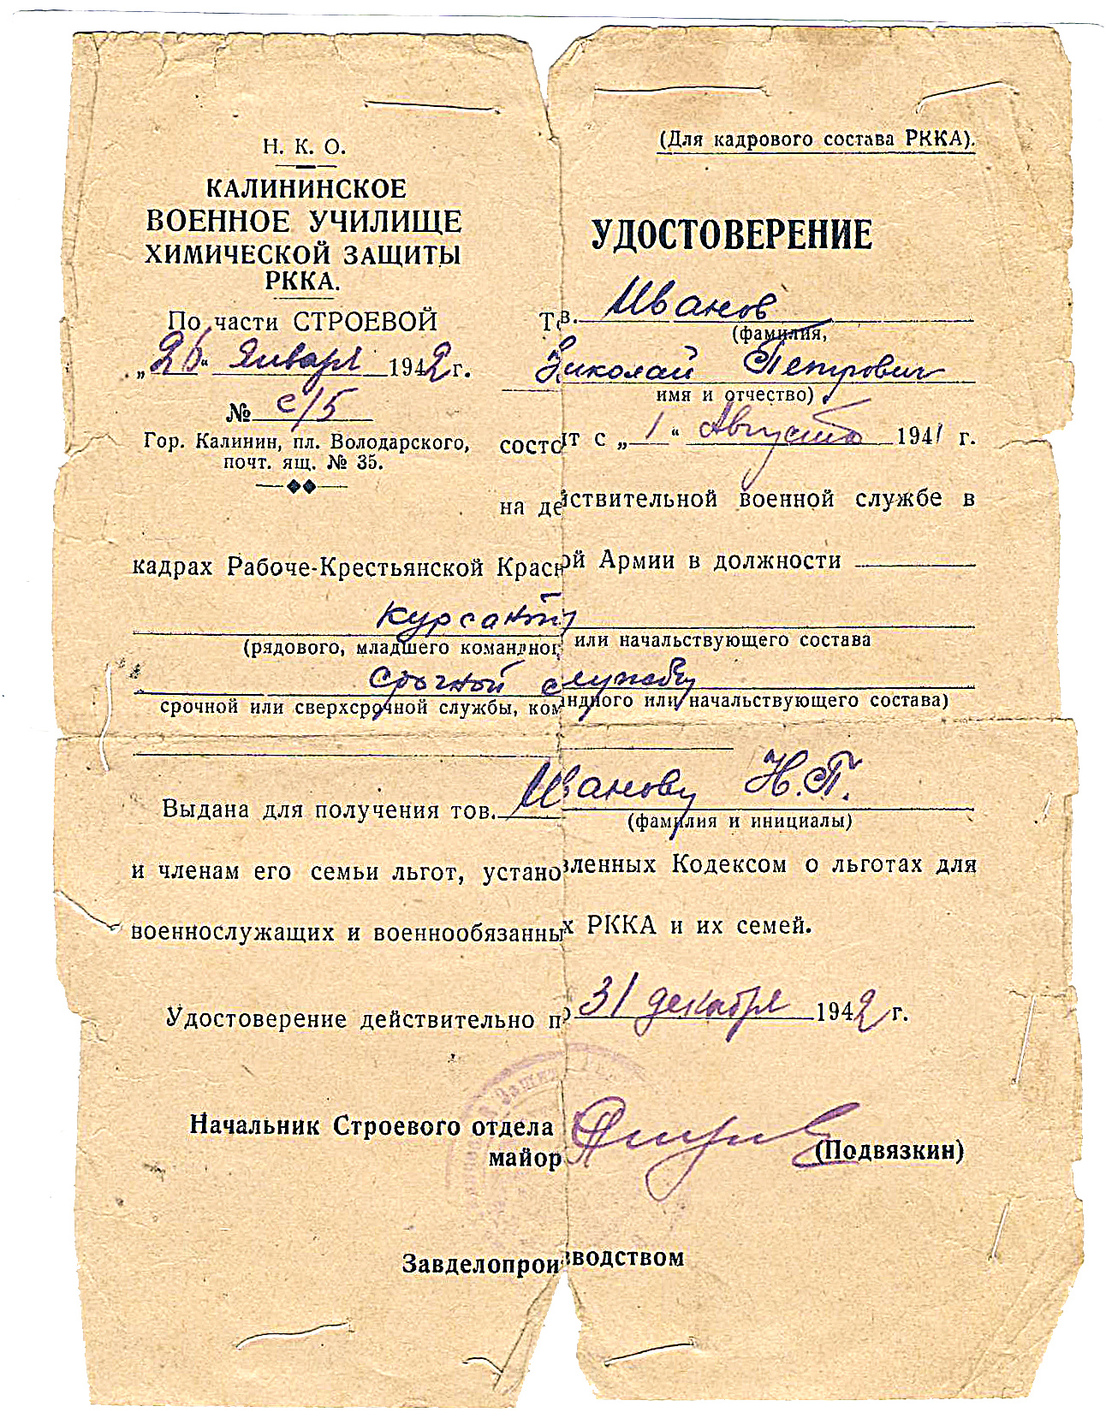 Н. К. О.
КАЛИНИНСКОЕ
ВОЕННОЕ УЧИЛИЩЕ
ХИМИЧЕСКОЙ ЗАЩИТЫ
РККА.
По части СТРОЕВОЙ
„26“ Января 1942 г.
№ с/5
Гор. Калинин, пл. Володарского,
почт. ящ. № 35.
(Для кадрового состава РККА).
УДОСТОВЕРЕНИЕ
Тов. Иванов
(фамилия,
Николай Петрович
имя и отчество)
состоит с „1“ Августа 1941 г.
на действительной военной службе в
кадрах Рабоче-Крестьянской Красной Армии в должности
курсант
(рядового, младшего командног или начальствующего состава
срочной службы
срочной или сверхсрочной службы, командного или начальствующего состава)
Выдана для получения тов. Иванову Н.П.
(фамилия и инициалы)
и членам его семьи льгот, установленных Кодексом о льготах для
военнослужащих и военнообязанных РККА и их семей.
Удостоверение действительно по 31 декабря 1942 г.
Начальник Строевого отдела
майор (Подвязкин)
Завделопроизводством